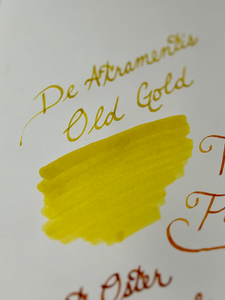 De Atramentis
Old Gold
Oster